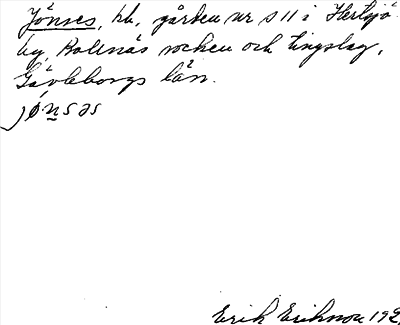 Jönses, hb, gården nr S 11 i Herksjö
by, Bollnäs socken och tingslag,
Gävleborgs län.
jønsəs
Erik Erikson 192